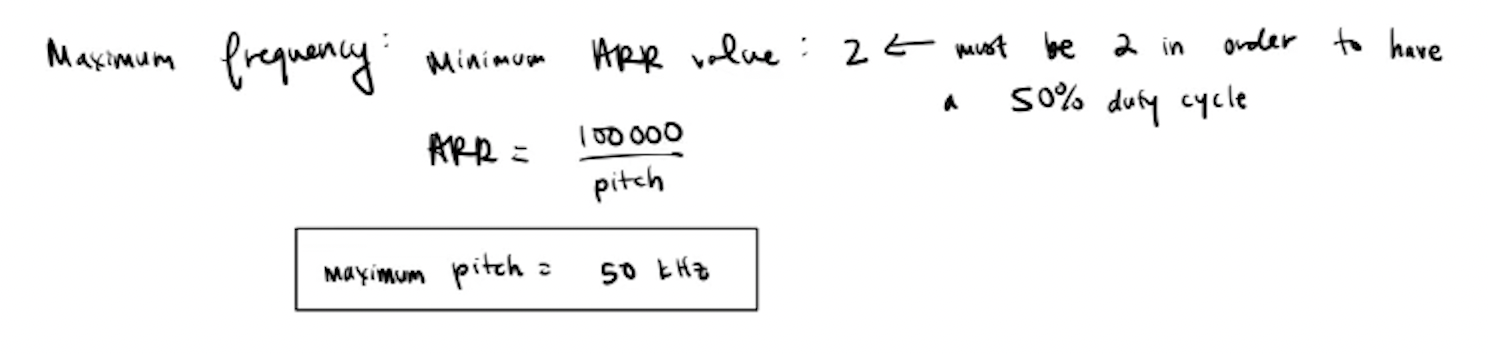 Maximum frequency: Minimum ARR value: 2 ← must be 2 in order to have
a 50% duty cycle
ARR = 100000
pitch
maximum pitch = 50 kHz